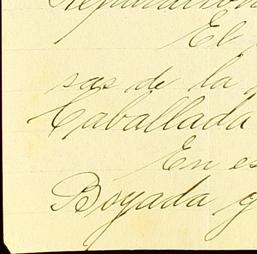 El
sas de la
Caballada
En es
Boyada y